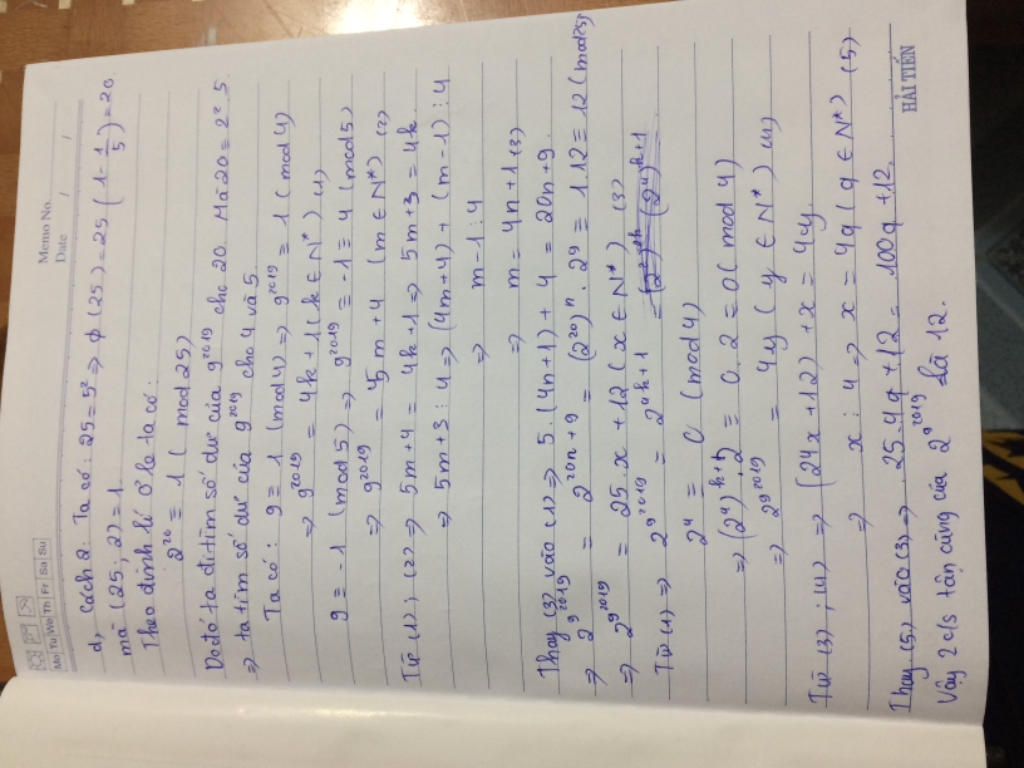 Memo No.
Date / /
Mo Tu We Th Fr Sa Su
d, Cách 2: Ta có: 25 = 5² => φ(25) = 25 (1 - 1/5) = 20.
mà (25; 2) = 1
Theo định lí Ơ le ta có:
2²⁰ ≡ 1 ( mod 25)
Do đó ta đi tìm số dư của 9²⁰¹⁹ cho 20. Mà 20 = 2². 5
=> ta tìm số dư của 9²⁰¹⁹ cho 4 và 5.
Ta có: 9 ≡ 1 (mod 4) => 9²⁰¹⁹ ≡ 1 ( mod 4)
=> 9²⁰¹⁹ = 4k + 1 ( k ∈ N*) (1)
9 ≡ -1 (mod 5) => 9²⁰¹⁹ ≡ -1 ≡ 4 (mod 5)
=> 9²⁰¹⁹ = 5m + 4 (m ∈ N*) (2)
Từ (1); (2) => 5m + 4 = 4k + 1 => 5m + 3 = 4k
=> 5m + 3 : 4 => (4m + 4) + (m - 1) : 4
=> m - 1 : 4
=> m = 4n + 1 (3)
Thay (3) vào (2) => 5. (4n + 1) + 4 = 20n + 9.
=> 2^9^2019 = 2^20n + 9 = (2²⁰)ⁿ. 2⁹ ≡ 1. 12 ≡ 12 (mod 25)
=> 2^9^2019 = 25. x + 12 ( x ∈ N*) (3)
Từ (1) => 2^9^2019 = 2^4k + 1
2⁴ ≡ 0 (mod 4)
=> (2⁴)ᵏ. 2 ≡ 0. 2 ≡ 0 ( mod 4)
=> 2^9^2019 = 4y ( y ∈ N*) (4)
Từ (3); (4) => (24x + 12) + x = 4y.
=> x : 4 => x = 4q ( q ∈ N*) (5)
Thay (5) vào (3) => 25. 4q + 12 = 100q + 12.
Vậy 2 c/s tận cùng của 2^9^2019 là 12.
HẢI TIẾN